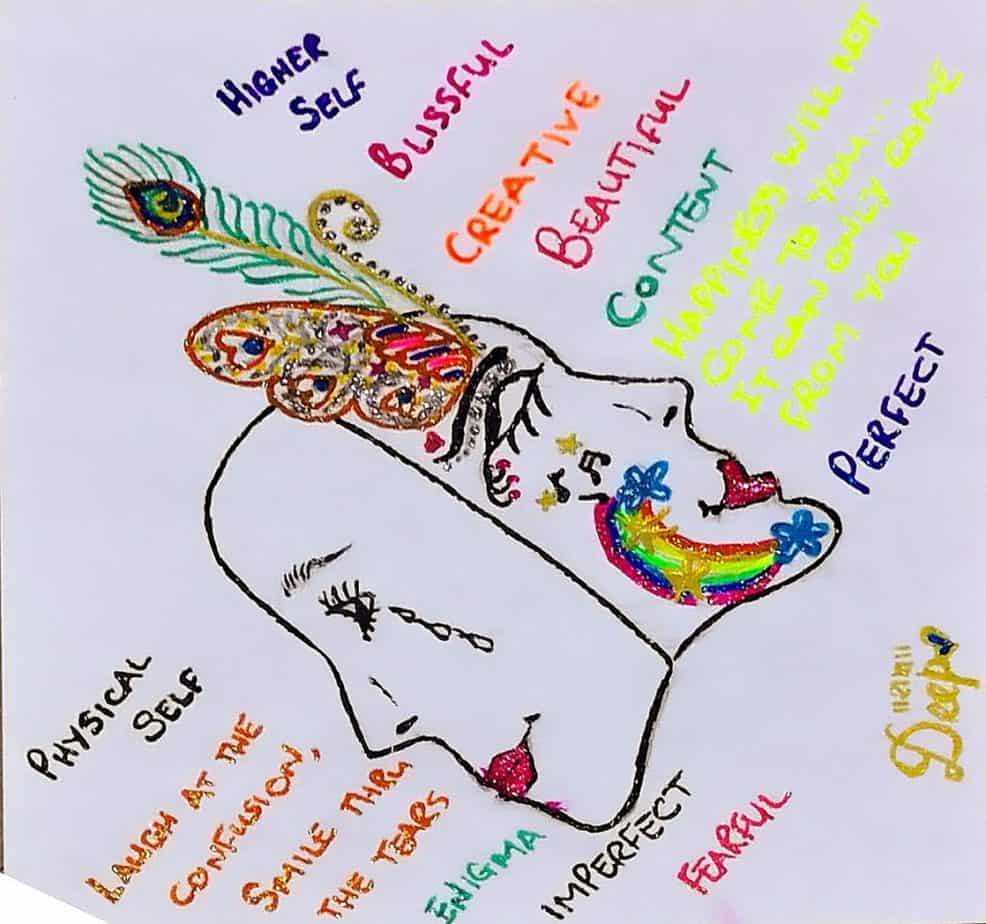 HIGHER
SELF
BLISSFUL
CREATIVE
BEAUTIFUL
CONTENT
HAPPINESS WILL NOT
COME TO YOU..
IT CAN ONLY COME
FROM YOU
PERFECT
PHYSICAL
SELF
LAUGH AT THE
CONFUSION,
SMILE THRU
THE TEARS
ENIGMA
IMPERFECT
FEARFUL
Deep